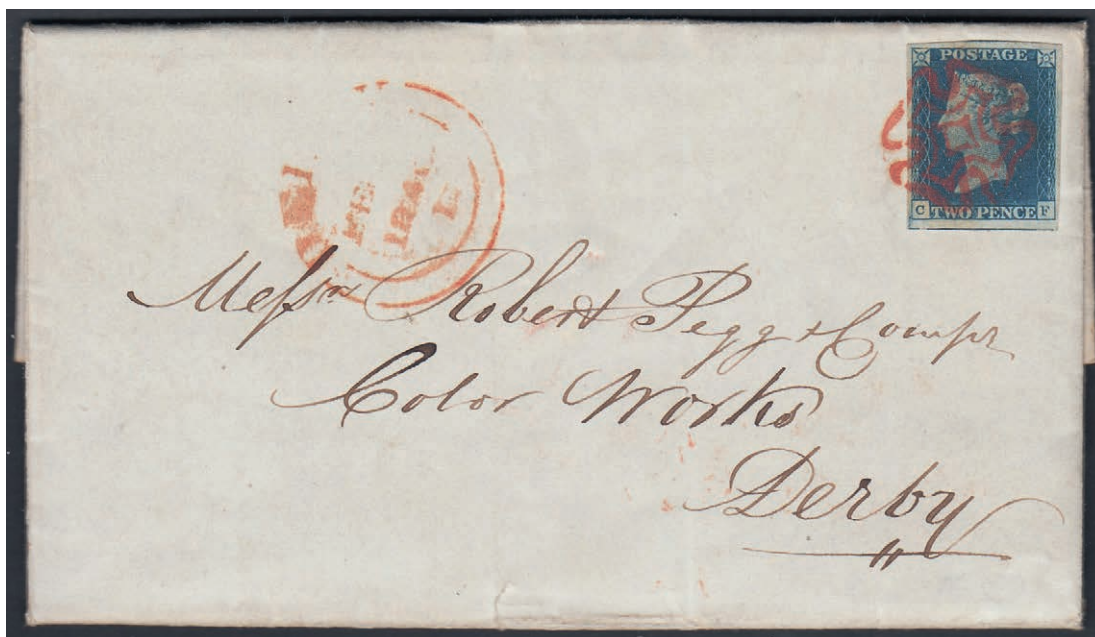 POSTAGE
C TWO PENCE F
Messrs Robert Pegg & Compy
Color Works
Derby